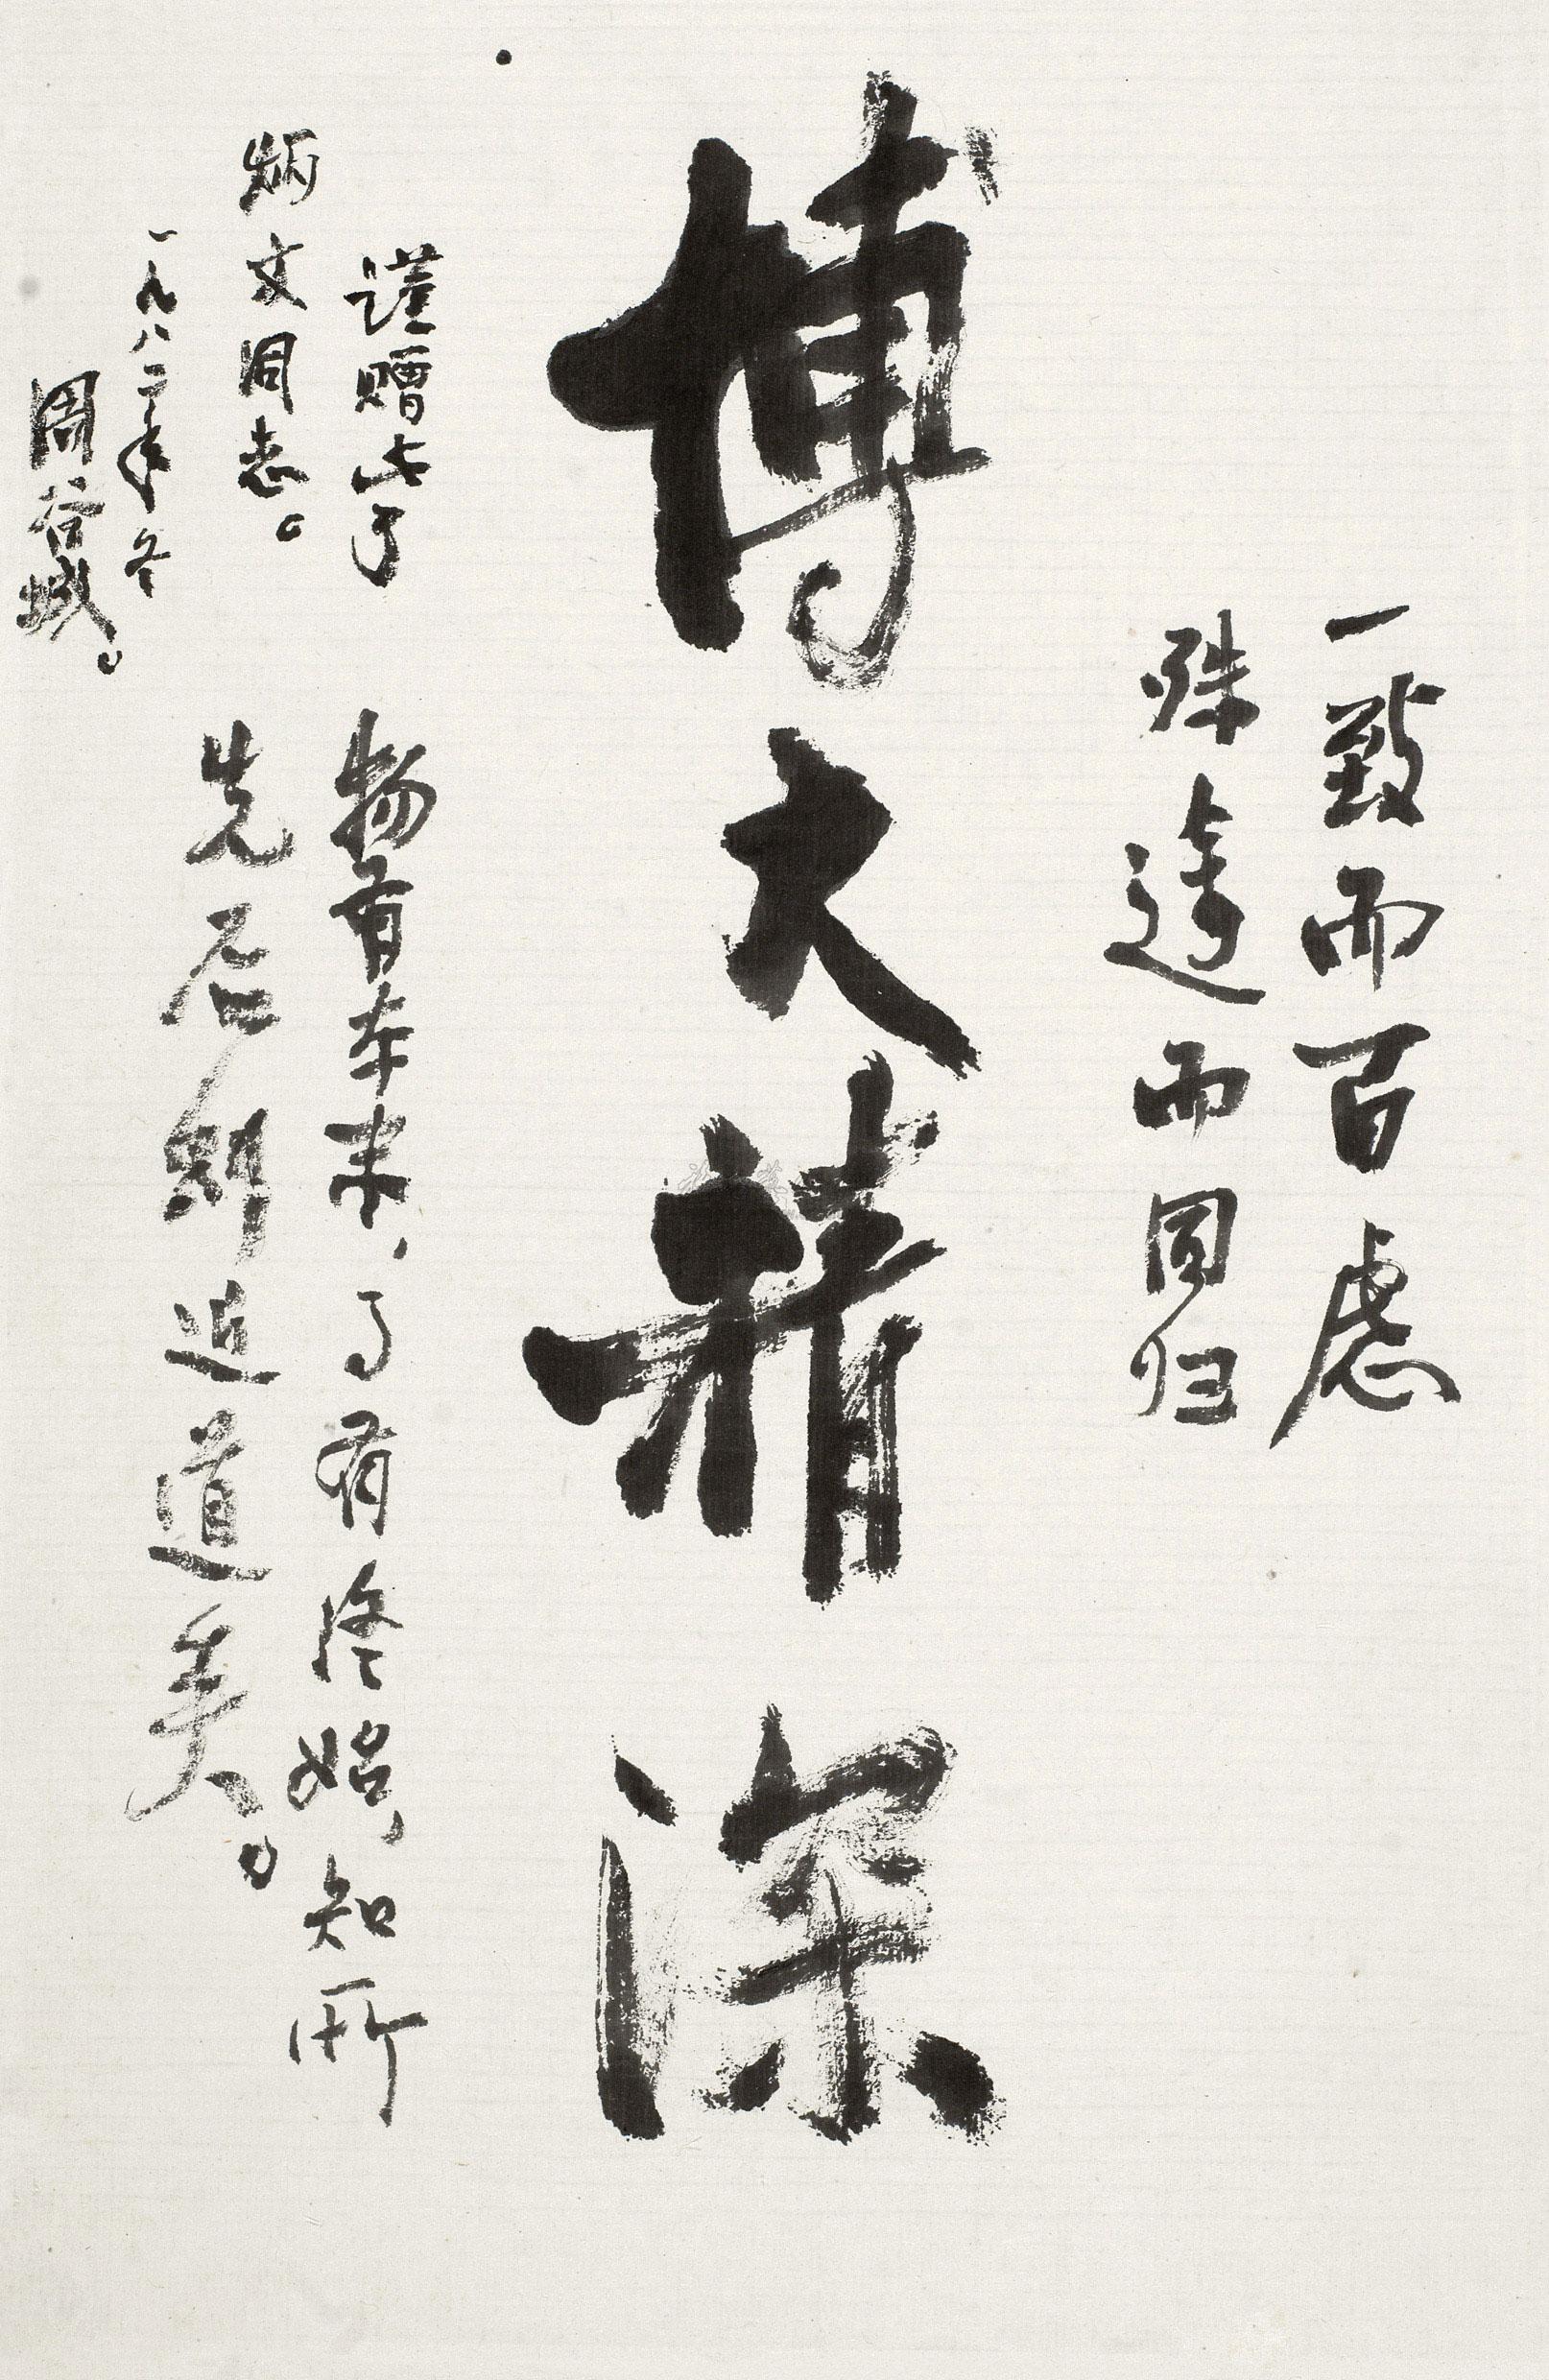 一致而百虑
殊途而同归
博大精深
物有本末，事有终始，知所
先后则近道矣。
谨赠此予
炳文同志。
一九八二年冬
周谷城。